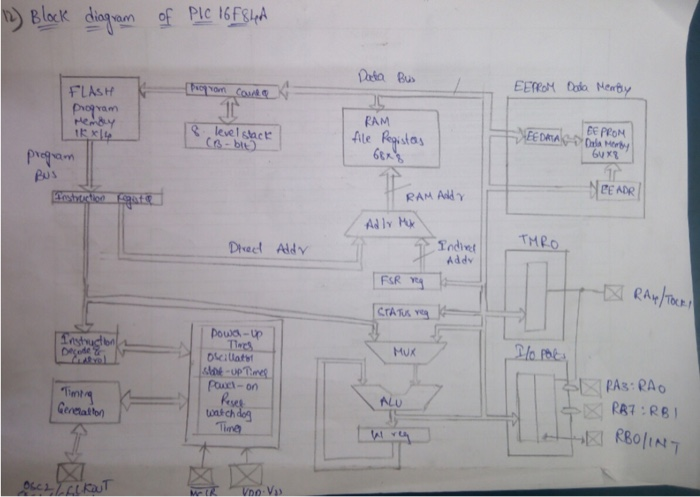 12) Block diagram of PIC 16F84A
Data Bus
FLASH
Program
Memory
1K x 14
Program Counter
8-level stack
(13-bit)
RAM
file Registers
68x8
EEPROM Data Memory
EEDATA
EEPROM
Data Memory
64x8
EEADR
Program
Bus
Instruction Register
RAM Addr
Addr Mux
Direct Addr
Indirect
Addr
FSR reg
STATUS reg
TMR0
RA4/Tock1
Instruction
Decode &
Control
Power-up
Timer
Oscillator
start-up Timer
power-on
Reset
watchdog
Timer
MUX
I/O Ports
Timing
Generation
ALU
W reg
RA3:RA0
RB7:RB1
RB0/INT
MCLR
VDD Vss